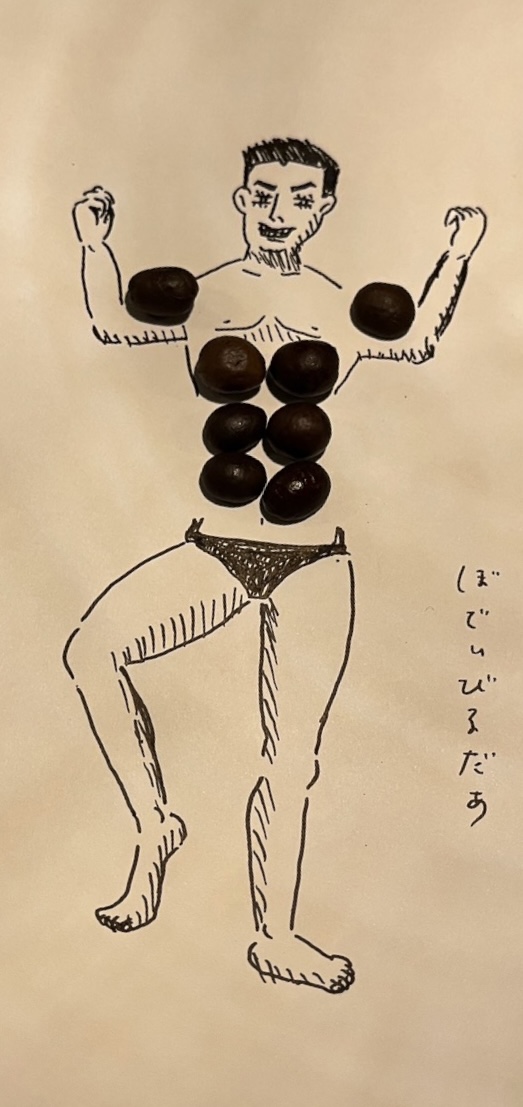 ぼでぃびるだあ